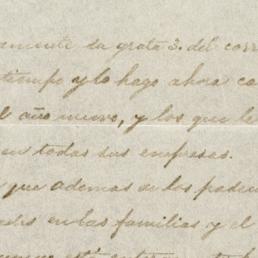 amente su grata 3. del corr
tiempo y lo hago ahora co
l año nuevo, y los que le
en todas sus empresas.
que ademas de los padeci
ades en las familias y el